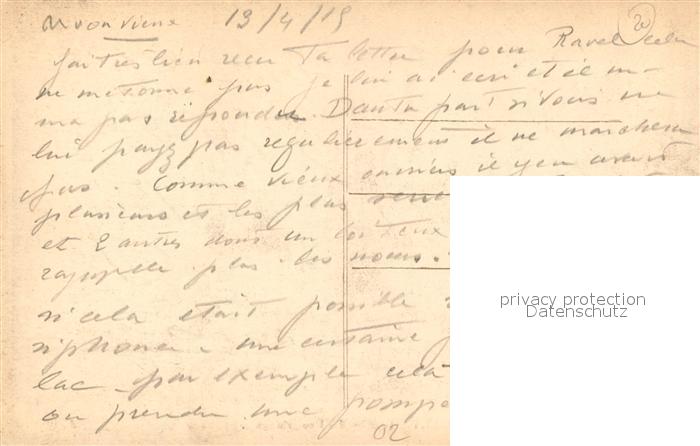 Mon vieux 13/4/15 20
J'ai très bien recu Ta lettre pour Ravel cela
ne m'etonne pas je lui ai ecri et il m
ma pas répondu. Dautr part si vous ne
lui payez pas regulierement il ne marchera
pas. Comme vieux ouvriers il y en avait
plusieurs et les plus
et 2 autres dont un
rappelle plus les noms.
si cela etait possible
siphoner. une certaine
lac par exemple cela
ou prendre une pompe
02
privacy protection
Datenschutz